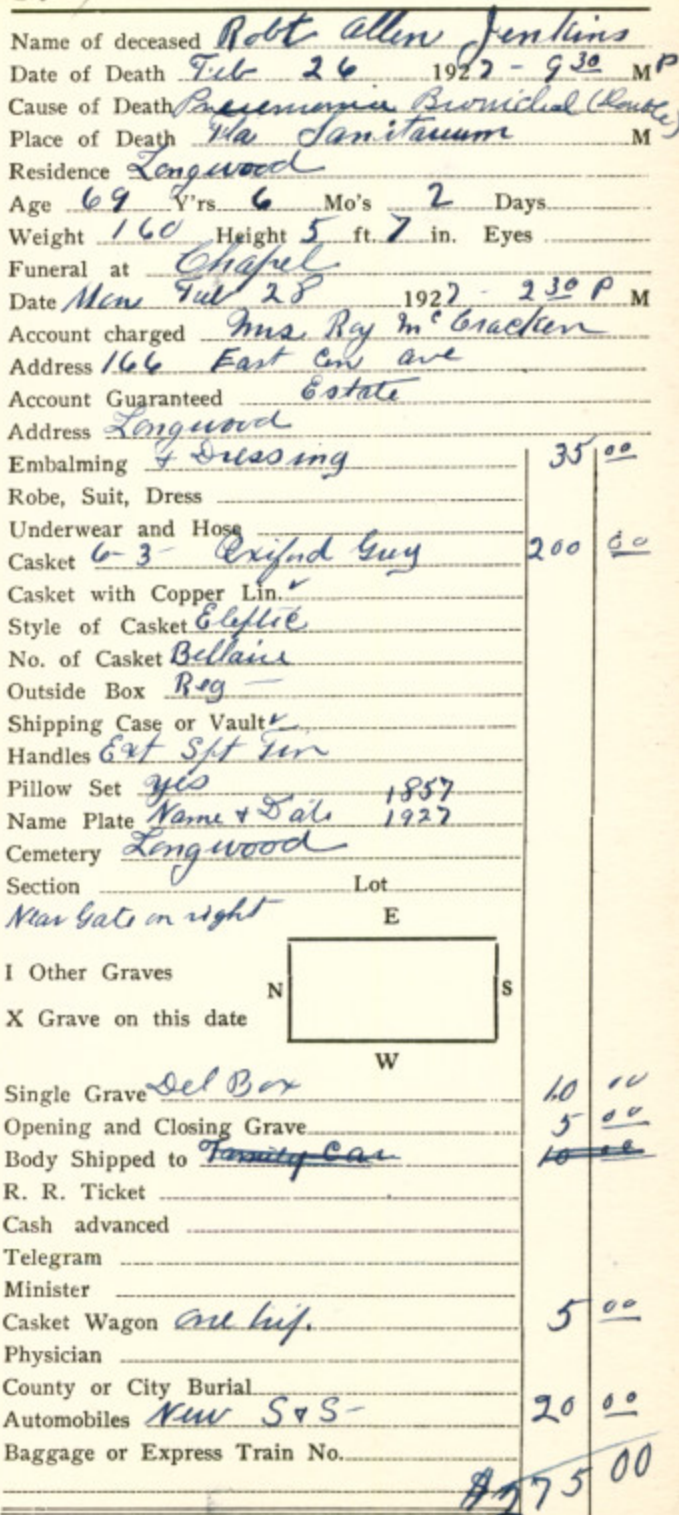 Name of deceased Robt Allen Jenkins
Date of Death Feb 26 1927 - 9 30 M P
Cause of Death Pneumonia Bronichal (Double)
Place of Death Fla Sanitarium M
Residence Longwood
Age 69 Y'rs 6 Mo's 2 Days
Weight 160 Height 5 ft. 7 in. Eyes
Funeral at Chapel
Date Mon Feb 28 1927 - 2 30 P M
Account charged Mrs. Ray McCracken
Address 166 East Cen ave
Account Guaranteed Estate
Address Longwood
Embalming & Dressing 35 00
Robe, Suit, Dress
Underwear and Hose
Casket 6-3- Oxiford Grey 200 00
Casket with Copper Lin. ✓
Style of Casket Eleptic
No. of Casket Bellaire
Outside Box Reg -
Shipping Case or Vault ✓
Handles Ext
Pillow Set yes 1857
Name Plate Name & Date 1927
Cemetery Longwood
Section Lot
Near Gate on right E
I Other Graves
N S
X Grave on this date
W
Single Grave Del Box 10 00
Opening and Closing Grave 5 00
Body Shipped to Family Car 10 00
R. R. Ticket
Cash advanced
Telegram
Minister
Casket Wagon one 5 00
Physician
County or City Burial
Automobiles New S & S - 20 00
Baggage or Express Train No.
$275 00